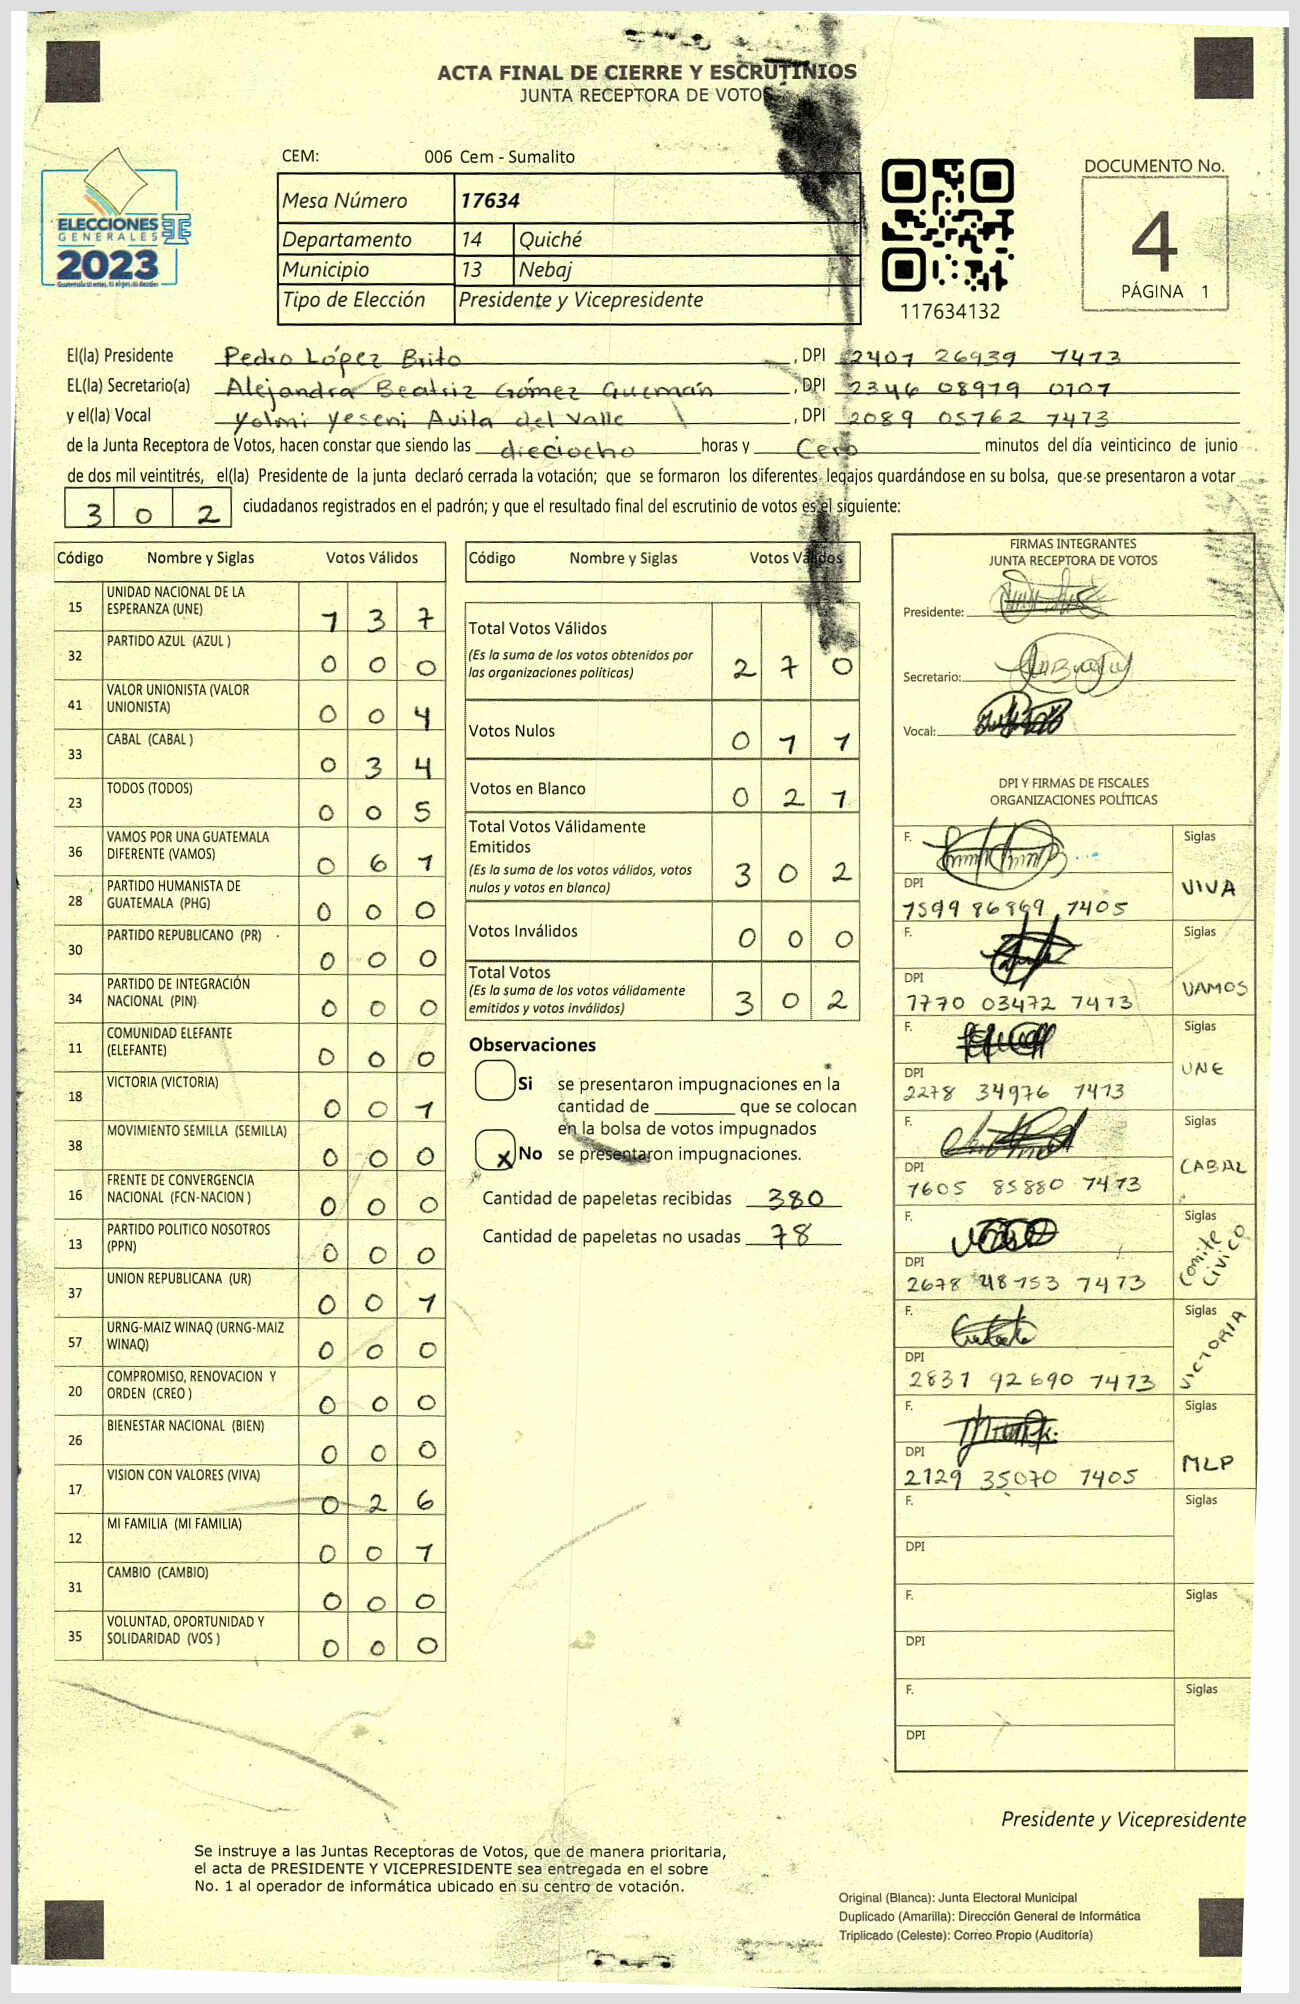 ACTA FINAL DE CIERRE Y ESCRUTINIOS
JUNTA RECEPTORA DE VOTOS
CEM: 006 Cem - Sumalito
Mesa Número 17634
Departamento 14 Quiché
Municipio 13 Nebaj
Tipo de Elección Presidente y Vicepresidente
ELECCIONES
GENERALES
2023
117634132
DOCUMENTO No.
4
PÁGINA 1
El(la) Presidente Pedro López Brito, DPI 2407 26939 7413
EL(la) Secretario(a) Alejandra Beatriz Gómez Guzmán, DPI 2346 08979 0107
y el(la) Vocal Yolmi Yeseni Avila del Valle, DPI 2089 05762 7413
de la Junta Receptora de Votos, hacen constar que siendo las dieciocho horas y Cero minutos del día veinticinco de junio
de dos mil veintitrés, el(la) Presidente de la junta declaró cerrada la votación; que se formaron los diferentes legajos guardándose en su bolsa, que se presentaron a votar
302 ciudadanos registrados en el padrón; y que el resultado final del escrutinio de votos es el siguiente:
Código Nombre y Siglas Votos Válidos
15 UNIDAD NACIONAL DE LA ESPERANZA (UNE) 1 3 7
32 PARTIDO AZUL (AZUL ) 0 0 0
41 VALOR UNIONISTA (VALOR UNIONISTA) 0 0 4
33 CABAL (CABAL ) 0 3 4
23 TODOS (TODOS) 0 0 5
36 VAMOS POR UNA GUATEMALA DIFERENTE (VAMOS) 0 6 1
28 PARTIDO HUMANISTA DE GUATEMALA (PHG) 0 0 0
30 PARTIDO REPUBLICANO (PR) 0 0 0
34 PARTIDO DE INTEGRACIÓN NACIONAL (PIN) 0 0 0
11 COMUNIDAD ELEFANTE (ELEFANTE) 0 0 0
18 VICTORIA (VICTORIA) 0 0 1
38 MOVIMIENTO SEMILLA (SEMILLA) 0 0 0
16 FRENTE DE CONVERGENCIA NACIONAL (FCN-NACION ) 0 0 0
13 PARTIDO POLITICO NOSOTROS (PPN) 0 0 0
37 UNION REPUBLICANA (UR) 0 0 1
57 URNG-MAIZ WINAQ (URNG-MAIZ WINAQ) 0 0 0
20 COMPROMISO, RENOVACION Y ORDEN (CREO ) 0 0 0
26 BIENESTAR NACIONAL (BIEN) 0 0 0
17 VISION CON VALORES (VIVA) 0 2 6
12 MI FAMILIA (MI FAMILIA) 0 0 1
31 CAMBIO (CAMBIO) 0 0 0
35 VOLUNTAD, OPORTUNIDAD Y SOLIDARIDAD (VOS ) 0 0 0
Código Nombre y Siglas Votos Válidos
Total Votos Válidos 2 7 0
(Es la suma de los votos obtenidos por
las organizaciones políticas)
Votos Nulos 0 1 1
Votos en Blanco 0 2 1
Total Votos Válidamente
Emitidos 3 0 2
(Es la suma de los votos válidos, votos
nulos y votos en blanco)
Votos Inválidos 0 0 0
Total Votos 3 0 2
(Es la suma de los votos válidamente
emitidos y votos inválidos)
Observaciones
Si se presentaron impugnaciones en la
cantidad de ________ que se colocan
en la bolsa de votos impugnados
x No se presentaron impugnaciones.
Cantidad de papeletas recibidas 380
Cantidad de papeletas no usadas 78
FIRMAS INTEGRANTES
JUNTA RECEPTORA DE VOTOS
Presidente:
Secretario:
Vocal:
DPI Y FIRMAS DE FISCALES
ORGANIZACIONES POLÍTICAS
F. Siglas
DPI VIVA
1599 86869 1405
F. Siglas
DPI VAMOS
1770 03472 7413
F. Siglas
DPI UNE
2278 34976 1413
F. Siglas
DPI CABAL
1605 85880 7413
F. Siglas
DPI Comite Civico
2678 48153 7413
F. Siglas
DPI VICTORIA
2831 92690 1413
F. Siglas
DPI MLP
2129 35070 1405
F. Siglas
DPI
F. Siglas
DPI
F. Siglas
DPI
Presidente y Vicepresidente
Se instruye a las Juntas Receptoras de Votos, que de manera prioritaria,
el acta de PRESIDENTE Y VICEPRESIDENTE sea entregada en el sobre
No. 1 al operador de informática ubicado en su centro de votación.
Original (Blanca): Junta Electoral Municipal
Duplicado (Amarilla): Dirección General de Informática
Triplicado (Celeste): Correo Propio (Auditoría)